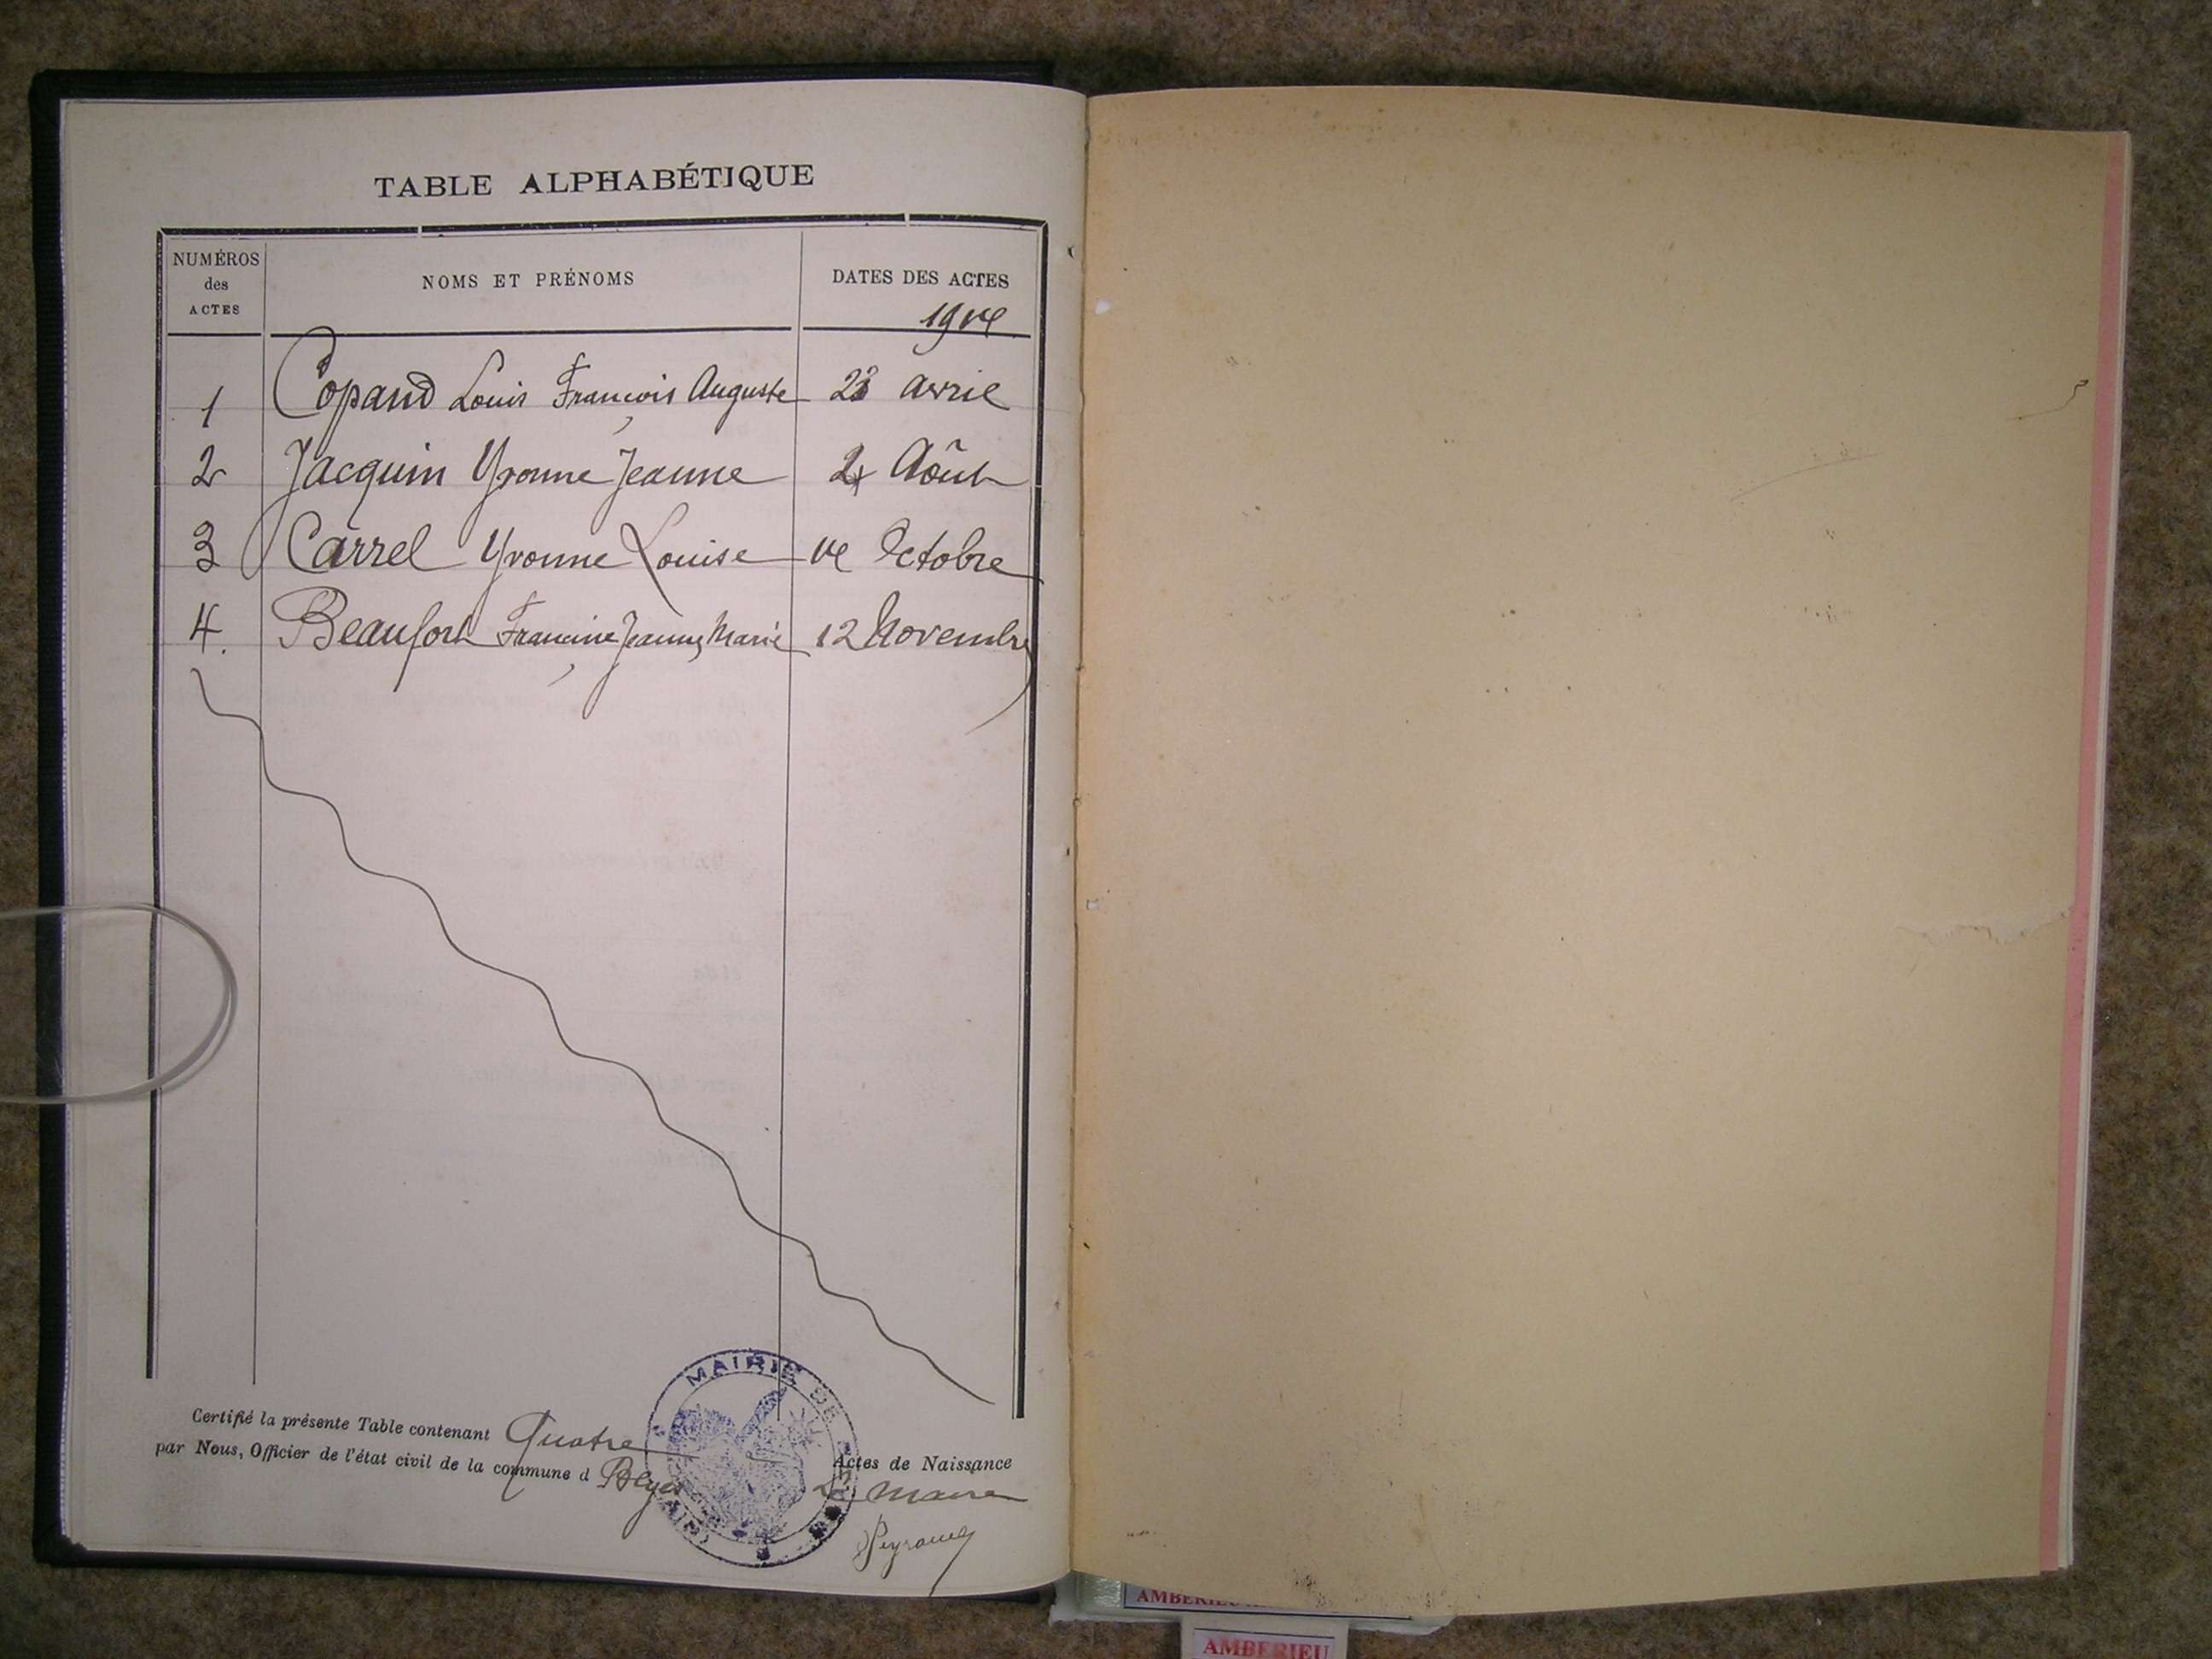 TABLE ALPHABÉTIQUE
NUMÉROS des ACTES
NOMS ET PRÉNOMS
DATES DES ACTES
1914
1 Copand Louis François Auguste 23 avril
2 Jacquin Yvonne Jeanne 24 Août
3 Carrel Yvonne Louise 14 Octobre
4. Beaufort Francine Jeanne Marie 12 Novembre
Certifié la présente Table contenant Quatre Actes de Naissance
par Nous, Officier de l'état civil de la commune d
Le Maire
MAIRIE DE
AMBERIEU
AMBERIEU